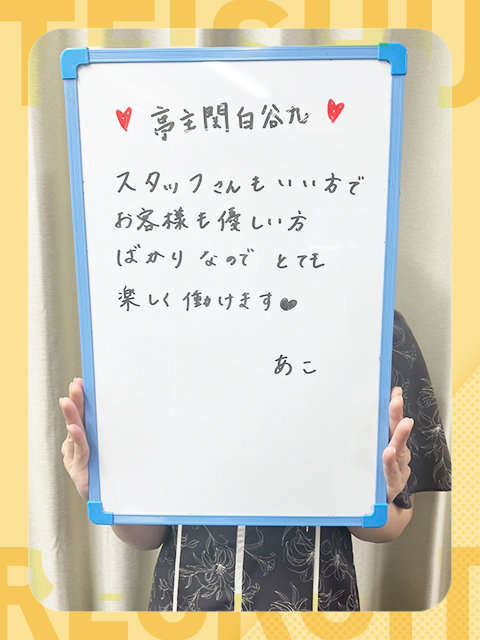 TEISHU
♥ 亭主関白谷九 ♥
スタッフさんもいい方で
お客様も優しい方
ばかりなので とても
楽しく働けます♥
あこ
RECRUIT